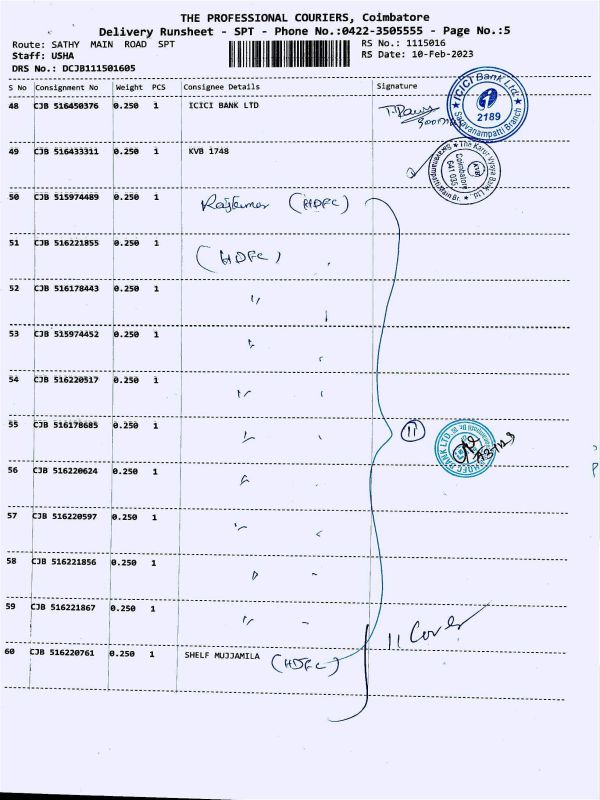 THE PROFESSIONAL COURIERS, Coimbatore
Delivery Runsheet - SPT - Phone No.:0422-3505555 - Page No.:5
Route: SATHY MAIN ROAD SPT RS No.: 1115016
Staff: USHA RS Date: 10-Feb-2023
DRS No.: DCJB111501605
S No Consignment No Weight PCS Consignee Details Signature
48 CJB 516450376 0.250 1 ICICI BANK LTD
ICICI Bank Ltd. 2189 Saravanampatti Branch
49 CJB 516433311 0.250 1 KVB 1748
The Karur Vysya Bank Ltd. Coimbatore 641 035 Saravanampatti Main Br.
50 CJB 515974489 0.250 1 Rajkumar (HDFC)
51 CJB 516221855 0.250 1 (HDFC)
52 CJB 516178443 0.250 1 "
53 CJB 515974452 0.250 1 "
54 CJB 516220517 0.250 1 "
55 CJB 516178685 0.250 1 " 11
HDFC BANK LTD.
56 CJB 516220624 0.250 1 "
57 CJB 516220597 0.250 1 "
58 CJB 516221856 0.250 1 "
59 CJB 516221867 0.250 1 "
11 Cover
60 CJB 516220761 0.250 1 SHELF MUJJAMILA (HDFC)